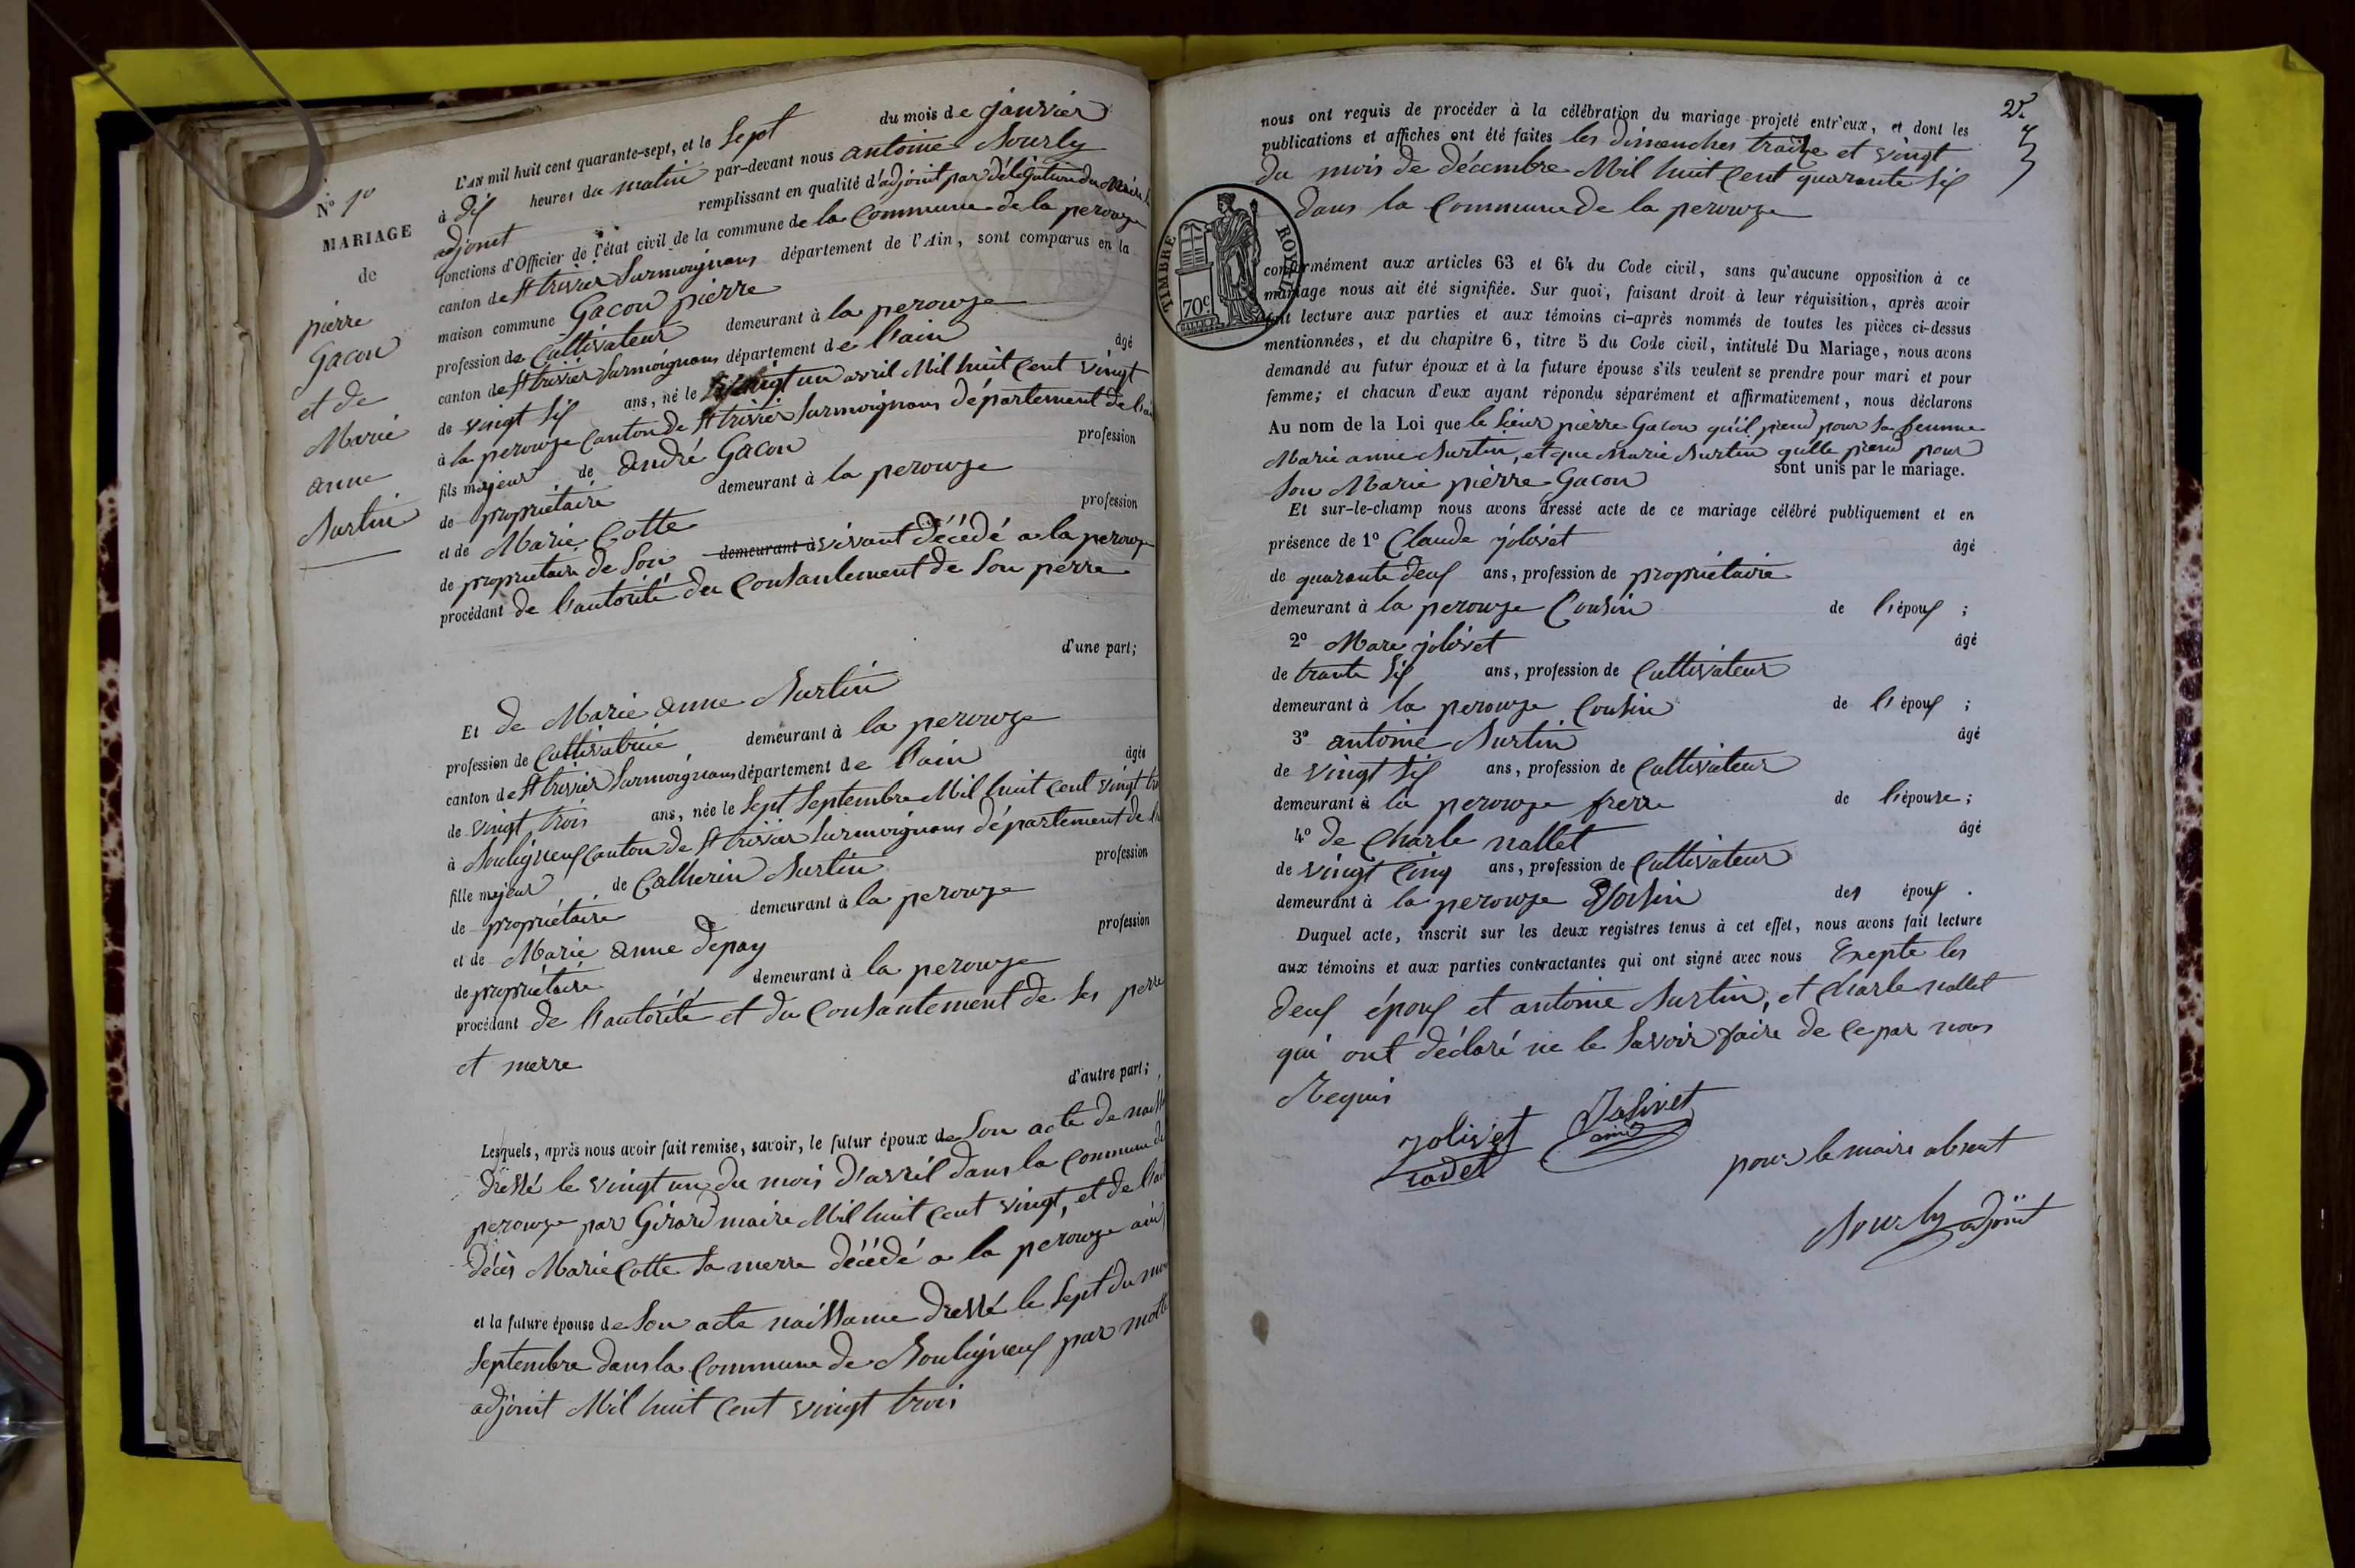 N° 1°
MARIAGE
de
pierre
Gacon
et de
Marie
anne
Surtin
L'AN mil huit cent quarante-sept, et le Sept du mois de janvier
à dix heures du matin par-devant nous antoine Sourly
adjoint remplissant en qualité d'adjoint par délégation du Maire
fonctions d'Officier de l'état civil de la commune de la Commune de la perouze
canton de St trivier Surmoignans département de l'Ain, sont comparus en la
maison commune Gacon pierre
profession de Cultivateur demeurant à la perouze
canton de St trivier Surmoignans département de l'ain âgé
de vingt six ans, né le vingt un avril Mil huit Cent vingt
à la perouze Canton de St trivier Surmoignans département de
fils majeur de andré Gacon profession
de propriétaire demeurant à la perouze
et de Marie Cotte profession
de propriétaire de Son demeurant à vivant décédé a la perouze
procédant de l'autorité du Consantement de Son perre
d'une part;
Et de Marie anne Surtin
profession de Cultivatrice demeurant à la perouze
canton de St trivier Surmoignans département de l'ain âgée
de vingt trois ans, née le Sept Septembre Mil huit Cent vingt
à Bouligneux Canton de St trivier Surmoignans département de
fille majeur de Catherin Surtin profession
de propriétaire demeurant à la perouze
et de Marie anne depay profession
de propriétaire demeurant à la perouze
procédant de l'autorité et du Consantement de Ses perre
et merre
d'autre part;
Lesquels, après nous avoir fait remise, savoir, le futur époux de Son acte de
dressé le vingt un du mois d'avril dans la Commune de
perouze par Girard maire Mil huit Cent vingt, et de
décès Marie Cotte Sa merre décédé a la perouze
et la future épouse de Son acte naissance dressé le Sept du
Septembre dans la Commune de Bouligneux par
adjoint Mil huit Cent vingt trois
nous ont requis de procéder à la célébration du mariage projeté entr'eux, et dont les
publications et affiches ont été faites les dimanches traize et vingt
du mois de décembre Mil huit Cent quarante Six
dans la Commune de la perouze
TIMBRE ROYAL
70c
conformément aux articles 63 et 64 du Code civil, sans qu'aucune opposition à ce
mariage nous ait été signifiée. Sur quoi, faisant droit à leur réquisition, après avoir
fait lecture aux parties et aux témoins ci-après nommés de toutes les pièces ci-dessus
mentionnées, et du chapitre 6, titre 5 du Code civil, intitulé Du Mariage, nous avons
demandé au futur époux et à la future épouse s'ils veulent se prendre pour mari et pour
femme; et chacun d'eux ayant répondu séparément et affirmativement, nous déclarons
Au nom de la Loi que le Sieur pierre Gacon qu'il prend pour Sa femme
Marie anne Surtin, et que Marie Surtin qu'elle prend pour
Son Marie pierre Gacon sont unis par le mariage.
Et sur-le-champ nous avons dressé acte de ce mariage célébré publiquement et en
présence de 1° Claude jolivet âgé
de quarante deux ans, profession de propriétaire
demeurant à la perouze Cousin de l'époux ;
2° Marc jolivet âgé
de trante Six ans, profession de Cultivateur
demeurant à la perouze Cousin de l'époux ;
3° antoine Surtin âgé
de vingt Six ans, profession de Cultivateur
demeurant à la perouze frerre de l'épouse ;
4° de Charle nallet âgé
de vingt Cinq ans, profession de Cultivateur
demeurant à la perouze des époux .
Duquel acte, inscrit sur les deux registres tenus à cet effet, nous avons fait lecture
aux témoins et aux parties contractantes qui ont signé avec nous Exepte les
deux époux et antoine Surtin, et Charle nallet
qui ont déclaré ne le Savoir faire de Ce par nous
Requis
jolivet
cadet
Jolivet
ainé
pour le maire absent
Sourly adjoint